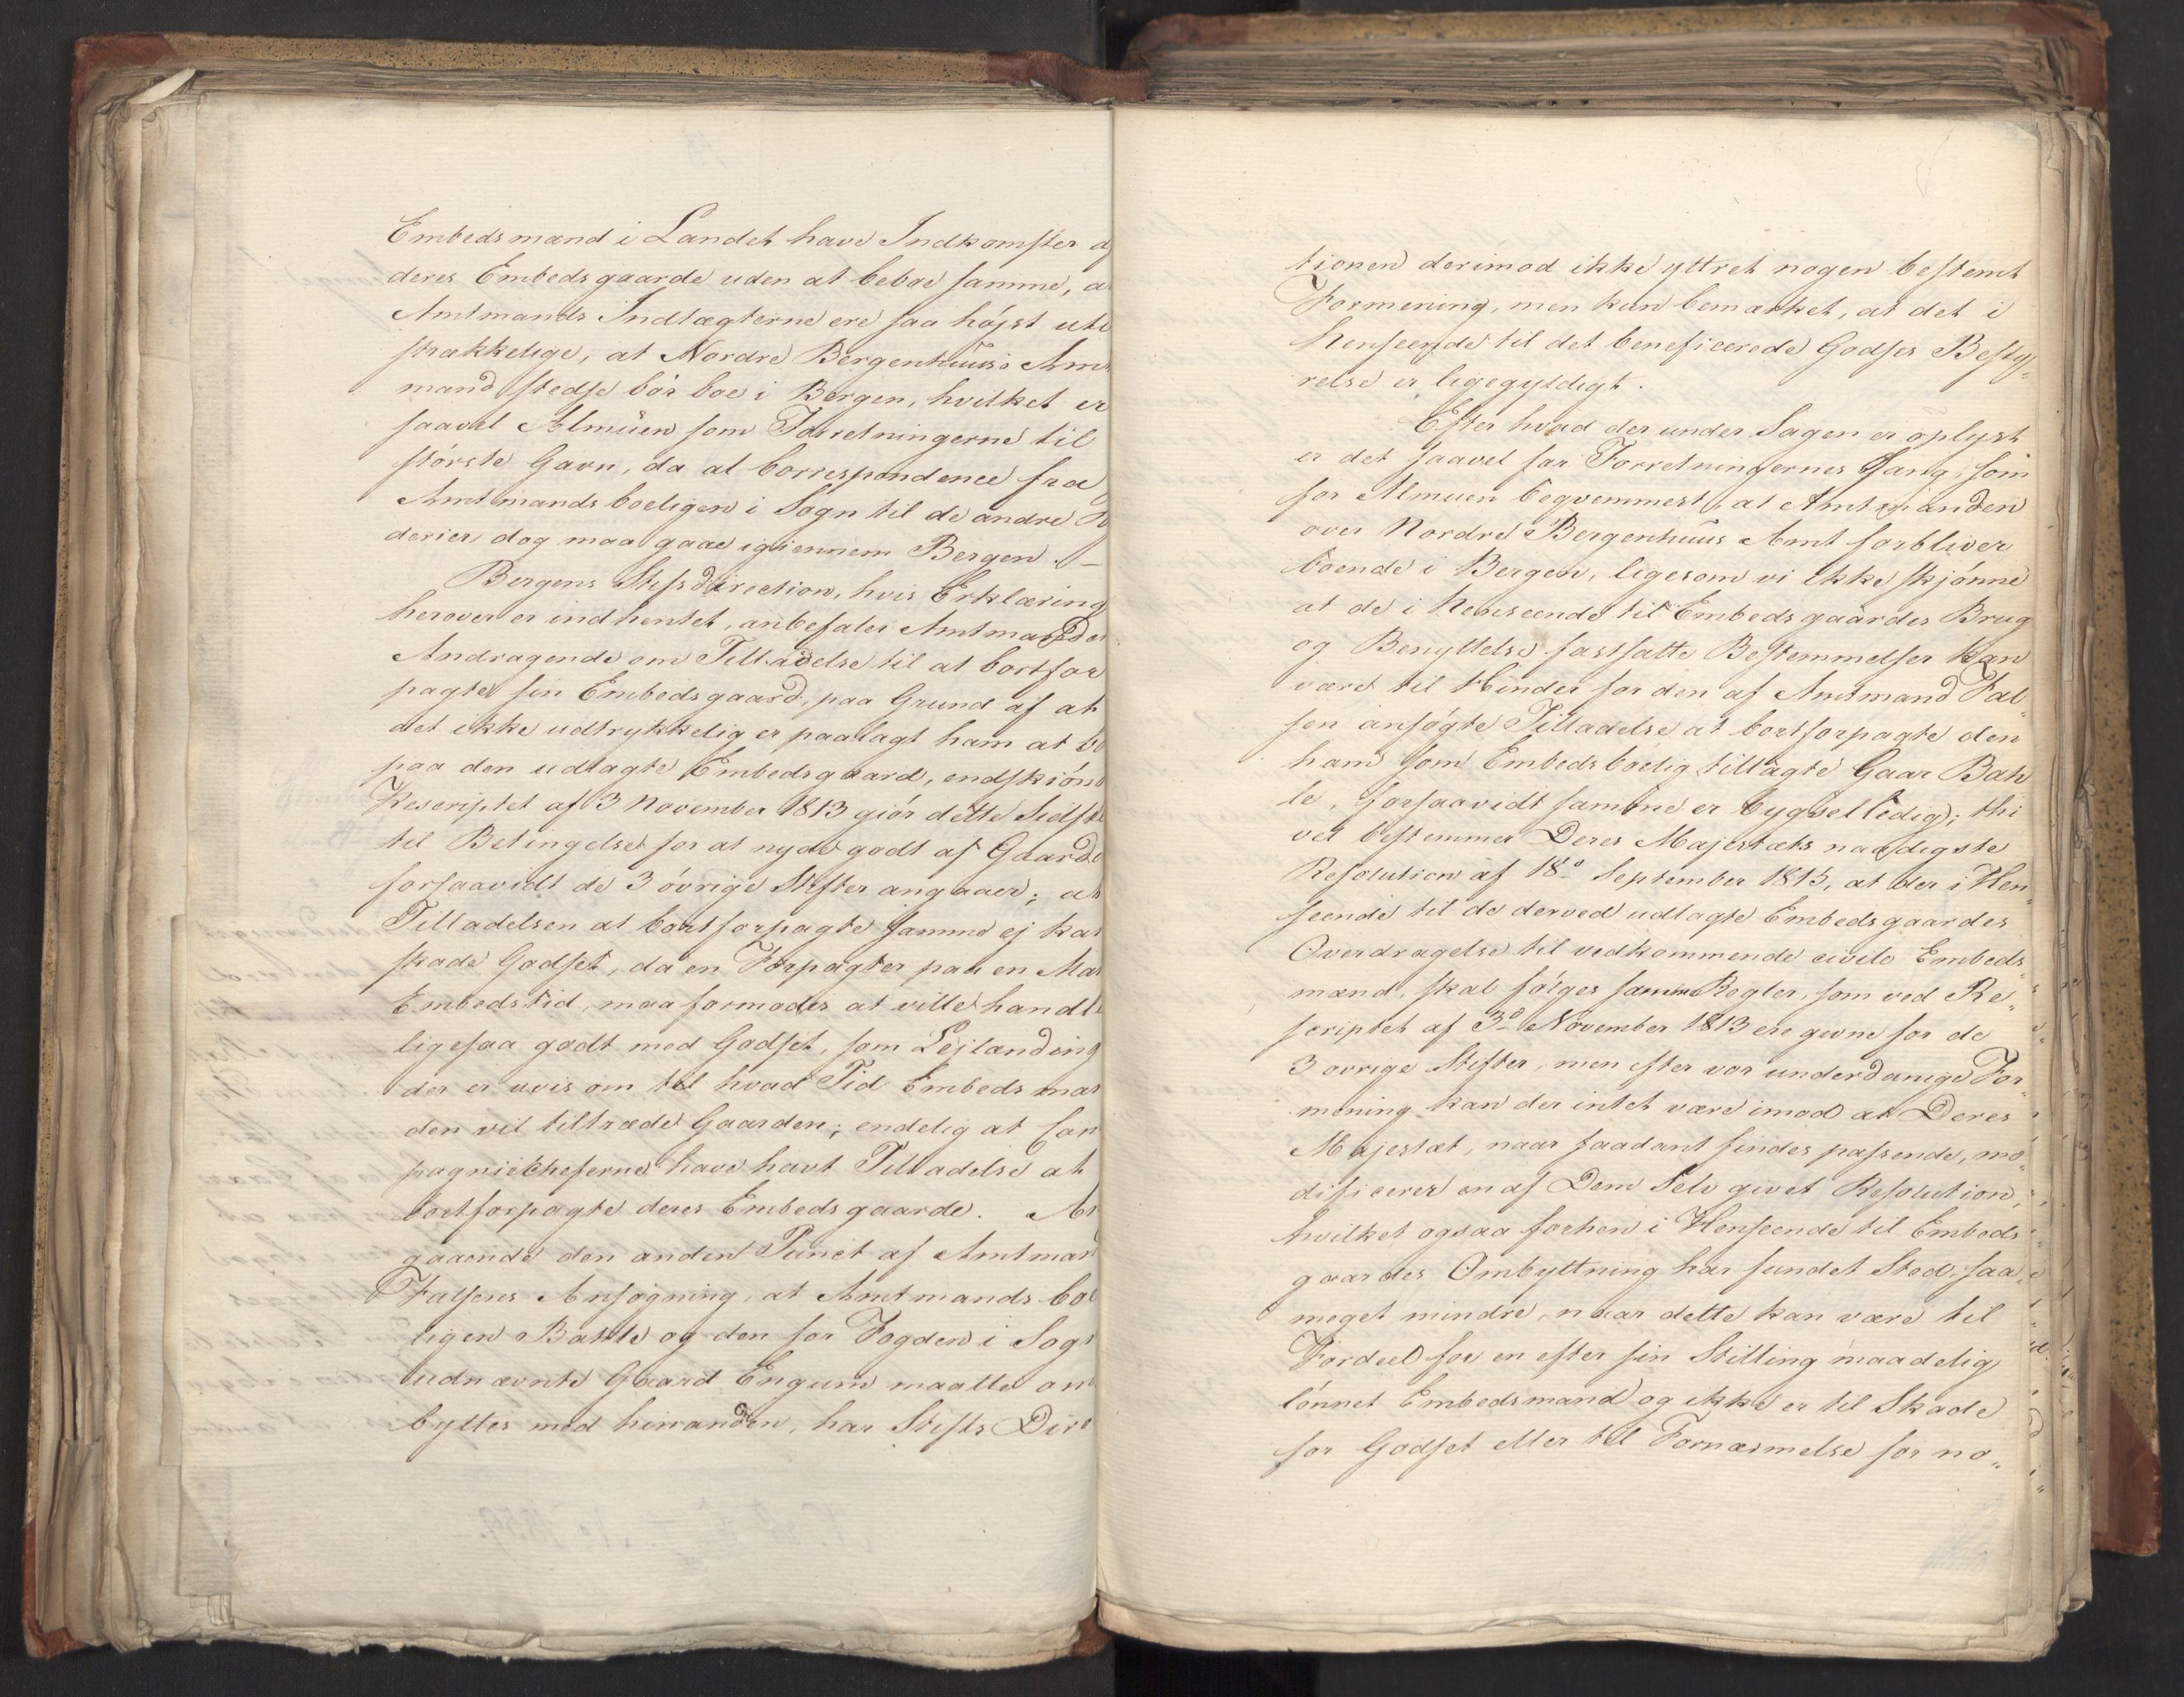 Embedsmænd i Landet have Indkomster a
deres Embedsgaarde uden at beboe samme, a
Amtmands Indtægterne ere saa højst uti
strækkelige, at Nordre Bergenhuus's Am
mand stedse bör boe i Bergen, hvilket er
saavel Almuen som Forretningerne til
störste Gavn, da al Correspondence fra
Amtmandsboeligen i Sogn til de andre
derier dog maa gaae igiennem Bergen. –
Bergens Stiftsdirection, hvis Erklæring
herover er indhentet, anbefaler Amtmanden
Andragende om Tilladelse til at bortfor
pagte sin Embedsgaard, paa Grund af at
det ikke udtrykkelig er paalagt ham at bo
paa den udlagte Embedsgaard, endskiön
Rescriptet af 3 November 1813 giör dette Sidste
til Betingelse for at nyde godt af Gaarde
forsaavidt de 3 övrige Stifter angaaer; at
Tilladelsen at bortforpagte samme ej kan
skade Godset, da en Forpagter paa en Man
Embedstid, maa formodes at ville handle
ligesaa godt med Godset, som Lejlænding
der er uvis om til hvad Tid Embedsman
den vil tiltræde Gaarden; endelig at Com
pagniecheferne have havt Tilladelse at
bortforpagte deres Embedsgaarde. An
gaaende den anden Punct af Amtmand
Falsens Ansögning, at Amtmandsboe
ligen Bahle og den for Fogden i Sogn
udnævnte Gaard Engum maatte om
byttes med hinanden, har Stifts Dire
tionen derimod ikke yttret nogen bestemt
Formening, men kun bemærket, at det i
Henseende til det beneficerede Godses Besty„
relse er ligegyldigt.
Efter hvad der under Sagen er oplyst
er det saavel for Forretningernes Gang, som
for Almuen beqvemmest, at Amtmanden
over Nordre Bergenhuus Amt forbliver
boende i Bergen, ligesom vi ikke skjönne
at de i Henseende til Embedsgaardes Brug
og Benyttelse fastsatte Bestemmelser kan
være til Hinder for den af Amtmand Fal„
sen ansögte Tilladelse at bortforpagte den
ham som Embedsboelig tillagte Gaar Bah
le, forsaavidt samme er bygselledig; thi
vel bestemmer Deres Majestæts naadigste
Resolution af 18de September 1815, at der i Hen„
seende til de derved udlagte Embedsgaardes
Overdragelse til vedkommende civile Embeds„
mænd, skal fölges samme Regler, som ved Re„
scriptet af 3de November 1813 ere givne for de
3 övrige Stifter, men efter vor underdanige For„
mening kan der intet være imod at Deres
Majestæt, naar saadant findes passende, mo„
dificerer en af Dem Selv givet Resolution,
hvilket ogsaa forhen i Henseende til Embeds„
gaardes Ombyttning har fundet Sted, saa„
meget mindre, naar dette kan være til
Fordeel for en efter sin Stilling maadelig
lönnet Embedsmand og ikke er til Skade
for Godset eller til Fornærmelse for no„